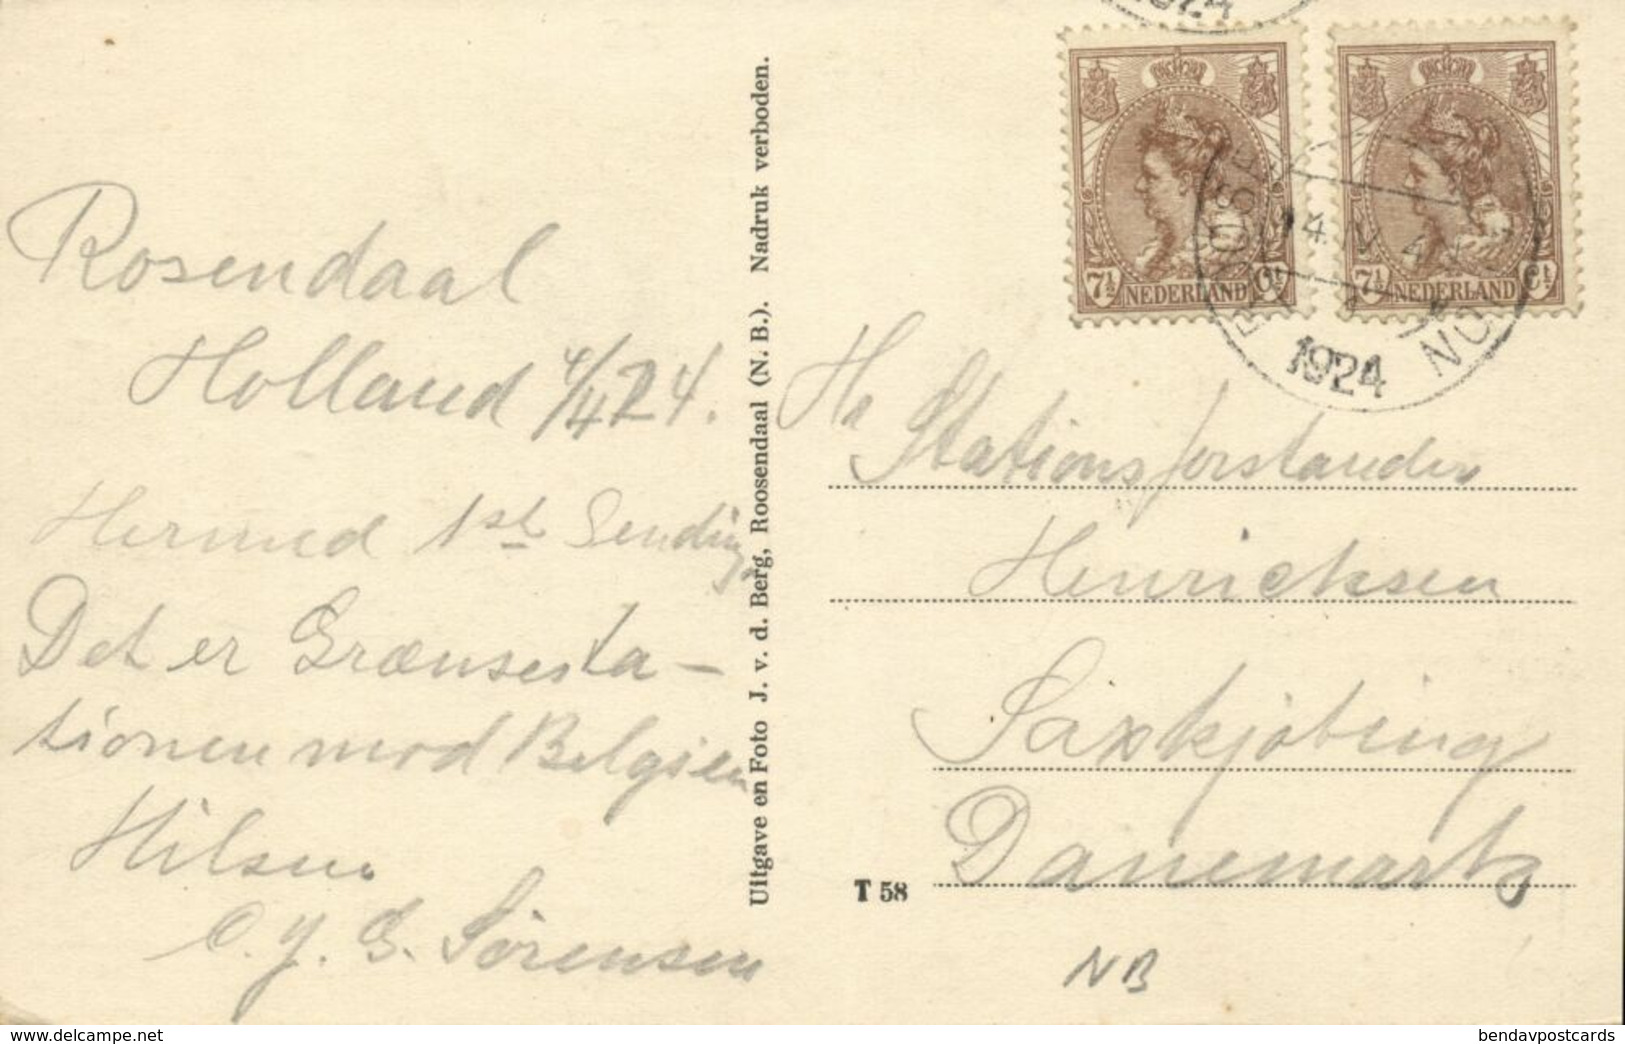 Rosendaal
Holland 4/4 24.
Hermed 1st Sending
Det er Grænsesta-
tionen mod Belgien
Hilsen
C. J. G. Sörensen
Uitgave en Foto J. v. d. Berg, Roosendaal (N. B.). Nadruk verboden.
1924
7½ NEDERLAND
7½ NEDERLAND
14 V 4
1924
Hr
Stationsforstander
Henricksen
Saxkjöbing
Danemark
T 58
NB
www.delcampe.net
bendavpostcards